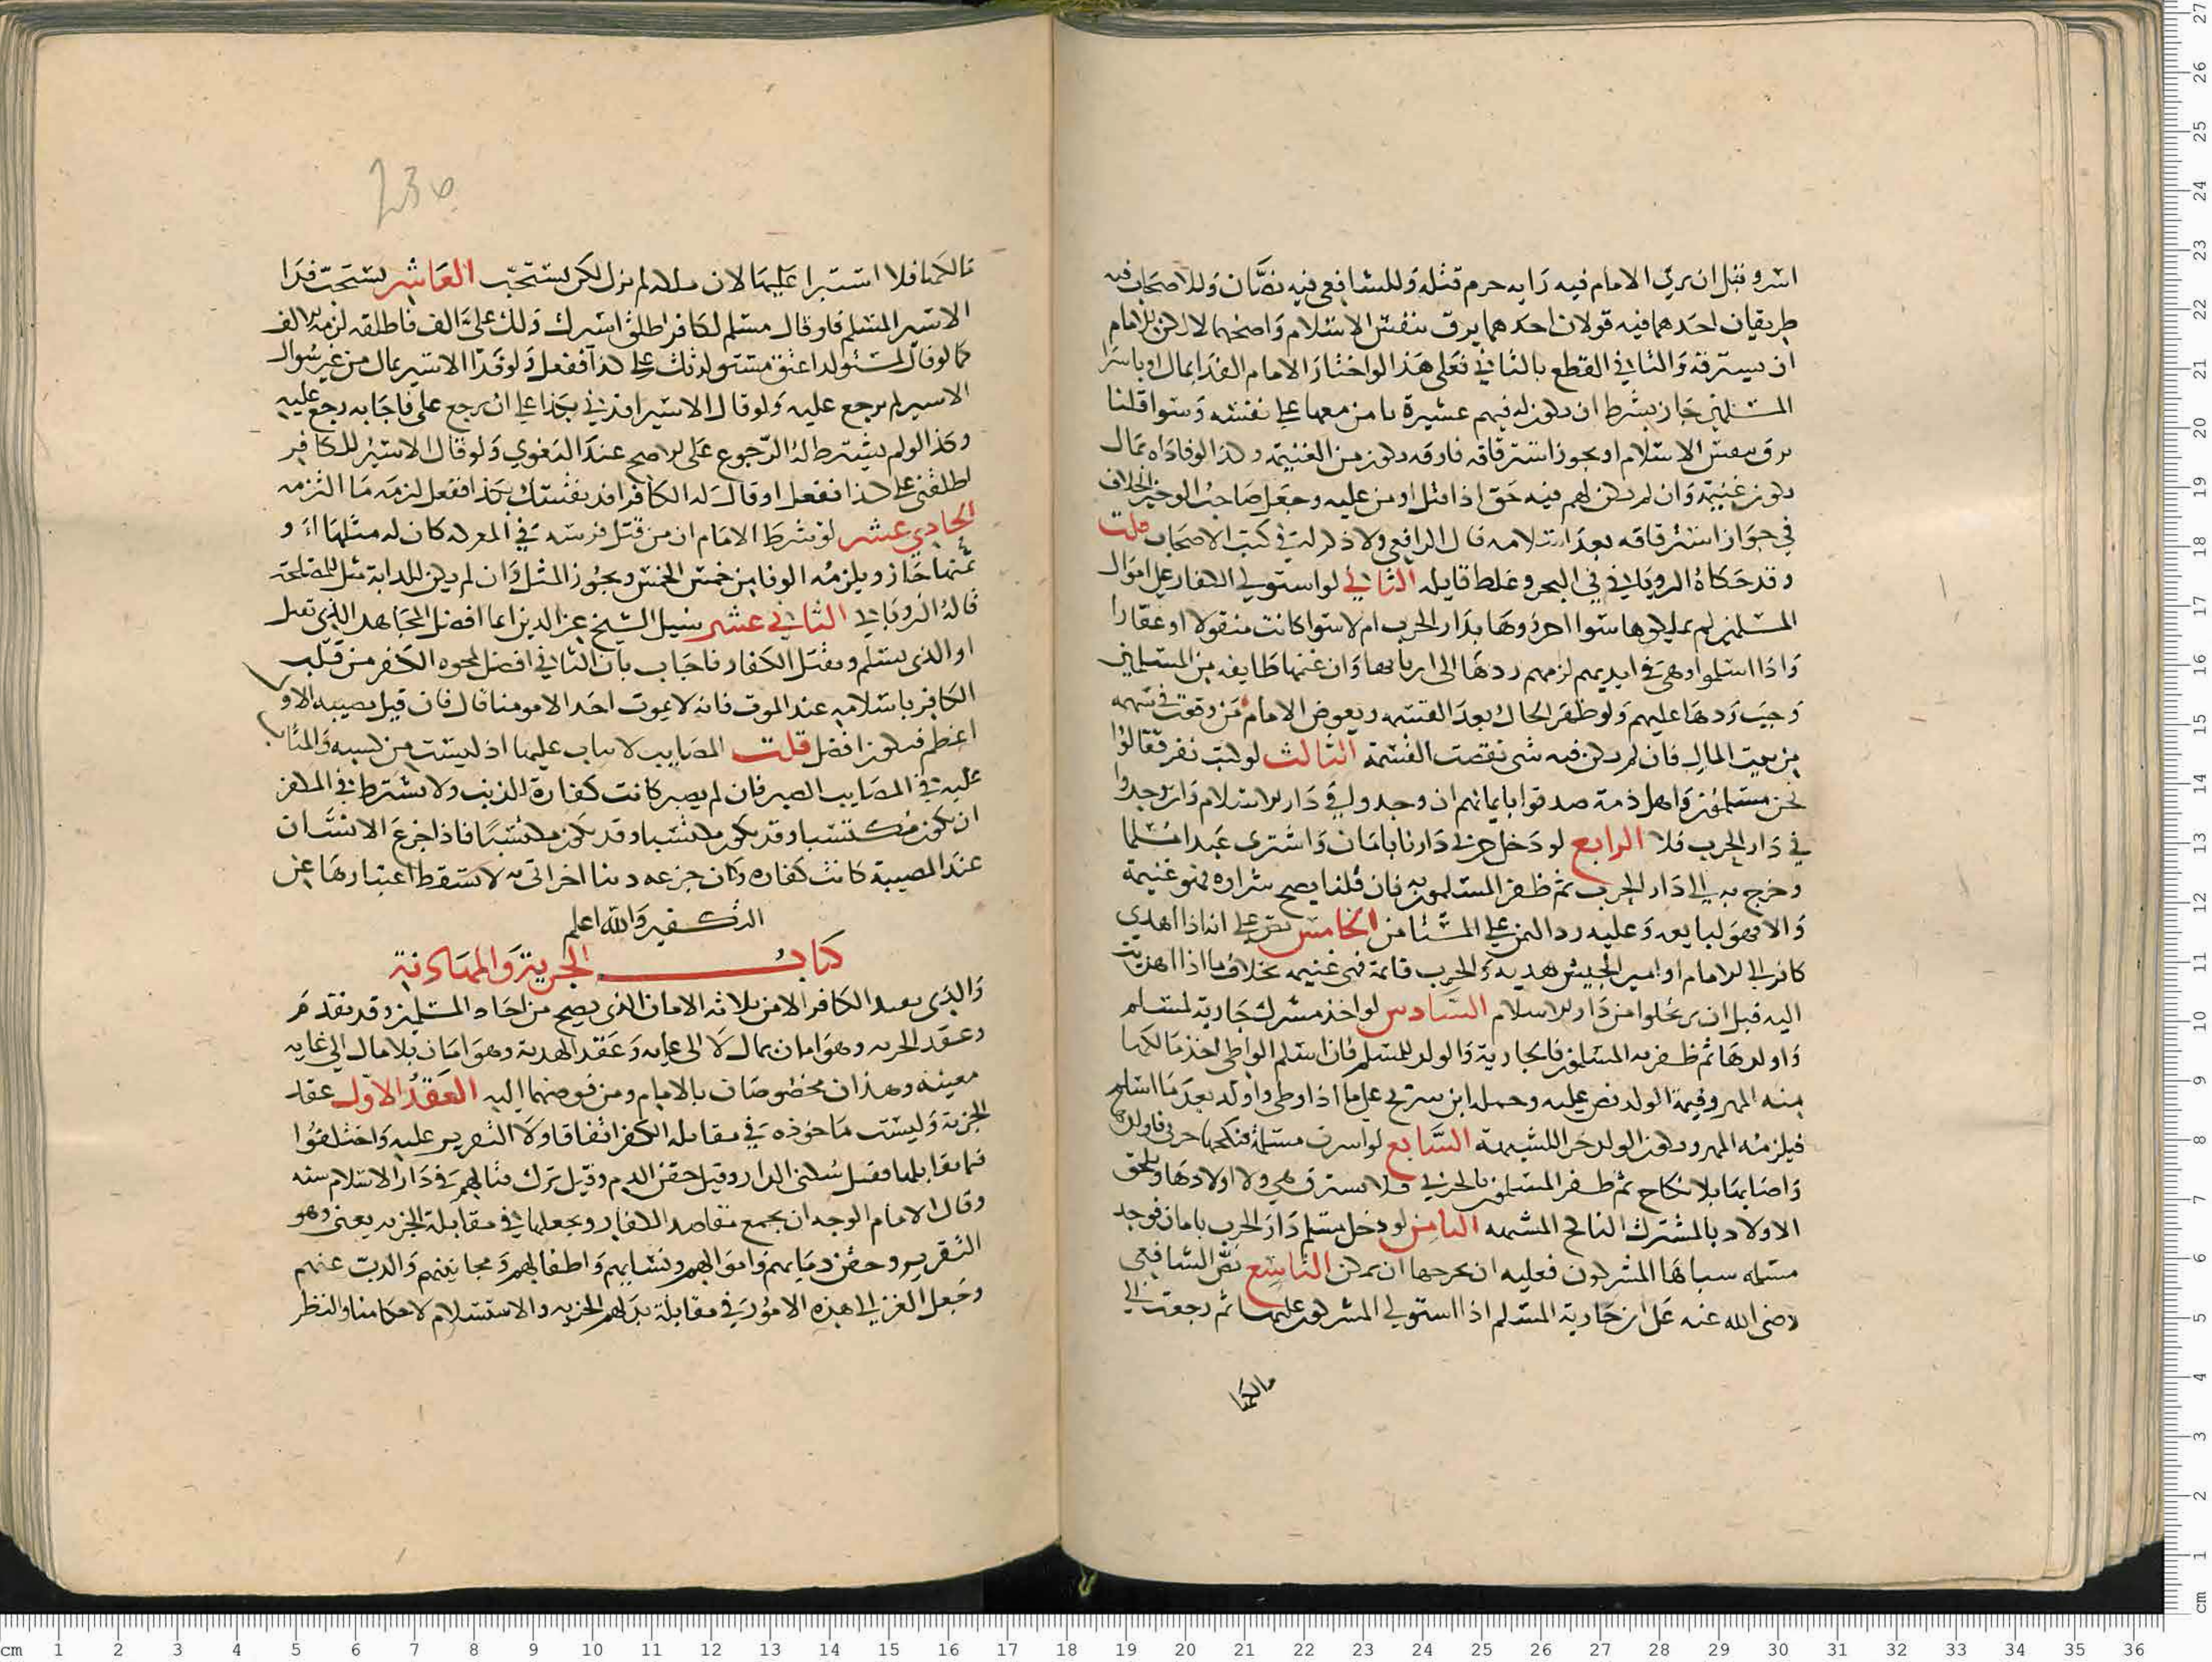 اسر وقبل ان يرى الامام فيه رايه حرم قتله وللشافعي فيه نصان وللاصحاب فيه
طريقان احدهما فيه قولان احدهما يرق بنفس الاسلام واصحهما لا لكن للامام
ان يسترقه والثاني القطع بالثاني فعلى هذا لو اختار الامام الفدا بمال او باسرا
المسلمين جاز بشرط ان يكون له فيهم عشيرة يامن معها على نفسه وسوا قلنا
يرق بنفس الاسلام او يجوز استرقاقه فارقه يكون من الغنيمة وكذا لو فاداه بمال
يكون غنيمة وان لم يكن لهم فيه حق اذا قتل او من عليه وجعل صاحب الوجيز الخلاف
في جواز استرقاقه بعد اسلامه قال الرافعي ولا ذكر له في كتب الاصحاب قلت
وقد حكاه الروياني في البحر وغلط قايله الثاني لو استولى الكفار على اموال
المسلمين لم يملكوها سوا احرزوها بدار الحرب ام لا سوا كانت منقولا او عقارا
واذا اسلموا وهي في ايديهم لزمهم ردها الى اربابها وان غنمها طايفه من المسلمين
وجب ردها عليهم ولو ظهر الحال بعد القسمه ويعوض الامام من وقعت في سهمه
من بيت المال فان لم يكن فيه شي نقضت القسمة الثالث لو كتب نفر فقالوا
نحن مسلمون او اهل ذمة صدقوا بايمانهم ان وجدوا في دار الاسلام وان وجدوا
في دار الحرب فلا الرابع لو دخل حربي دارنا بامان واشترى عبدا مسلما
وخرج به الى دار الحرب ثم ظفر المسلمون به فان قلنا يصح شراوه فهو غنيمة
والا فهو لبايعه وعليه رد الثمن على المستامن الخامس نص على انه اذا اهدى
كافر الى الامام او امير الجيش هديه والحرب قائمة فهي غنيمه بخلاف ما اذا اهديت
اليه قبل ان يرتحلوا من دار الاسلام السادس لو اخذ مشرك جارية لمسلم
واولدها ثم ظفر به المسلمون فالجارية والولد للمسلم فان اسلم الواطي اخذ مالكها
منه المهر وقيمة الولد نص عليه وحمله ابن سريج على ما اذا وطي واولد بعد ما اسلم
فيلزمه المهر ويكون الولد حرا للشبهة السابع لو اسرت مسلمة فنكحها حربي فاولدها
واصابها بلا نكاح ثم ظفر المسلمون بالحربي فلا يسترق هي ولا اولادها ويلحق
الاولاد بالمشرك الناكح للشبهه الثامن لو دخل مسلم دار الحرب بامان فوجد
مسلمه سباها المشركون فعليه ان يخرجها ان يمكن التاسع نص الشافعي
رضي الله عنه على ان جارية المسلم اذا استولى المشركون عليها ثم رجعت الى
مالكها
236
مالكها فلا استبرا عليها لان ملكه لم يزل لكن يستحب العاشر يستحب فدا
الاسير المسلم فلو قال مسلم لكافر اطلق اسيرك ولك علي الف فاطلقه لزمه الالف
كما لو قال لمستولد اعتق مستولدتك على كذا ففعل ولو فدا الاسير بمال من غير سوال
الاسير لم يرجع عليه ولو قال الاسير افدني بكذا على ان يرجع علي فاجابه رجع عليه
وكذا لو لم يشترط له الرجوع على الاصح عند البغوي ولو قال الاسير للكافر
اطلقني على كذا ففعل او قال له الكافر افد نفسك بكذا ففعل لزمه ما التزمه
الحادي عشر لو شرط الامام ان من قتل فرسه في المعركه كان له مثلها او
ثمنها جاز ويلزمه الوفا من خمس الخمس ويجوز المثل وان لم يكن للدابة مثل للمصلحة
قاله الروياني الثاني عشر سيل الشيخ عز الدين ايما افضل المجاهد الذي تقبل
او الذي يسلم ويقتل الكفار فاجاب بان الثاني افضل لمحوه الكفر من قلب
الكافر باسلامه عند الموت فانه لا يموت احد الا مومنا قال فان قيل مصيبه الاول
اعظم فيكون افضل قلت المصايب لا يثاب عليها اذ ليست من كسبه والمثاب
عليه في المصايب الصبر فان لم يصبر كانت كفارة للذنب ولا يشترط في المكفر
ان يكون مكتسبا وقد يكون مكتسبا وقد يكون مكتسبا فاذا جزع الانسان
عند المصيبة كانت كفاره وكان جزعه ذنبا اخر اتى به لا يسقط اعتبارها عن
التكفير والله اعلم
كتاب الجزية والمهادنة
والذي يفيد الكافر الامن ثلاثه الامان الذي يصح من احاد المسلمين وقد تقدم
وعقد الجزيه وهو امان بمال لا الى غايه وعقد الهدنة وهو امان بلا مال الى غايه
معينه وهذان مخصوصان بالامام ومن فوضهما اليه العقد الاول عقد
الجزية وليست ماخوذه في مقابله الكفر اتفاقا ولا التقرير عليه واختلفوا
فيما يقابلها فقيل سكنى الدار وقيل حقن الدم وقيل ترك قتالهم في دار الاسلام سنه
وقال الامام الوجه ان يجمع مقاصد الكفار ويجعلها في مقابلة الجزيه يعني وهو
التقرير وحقن دمايهم واموالهم ونسايهم واطفالهم ومجانينهم والذب عنهم
وجعل الغزالي هذه الامور في مقابلة بذلهم الجزيه والاستسلام لاحكامنا والنظر